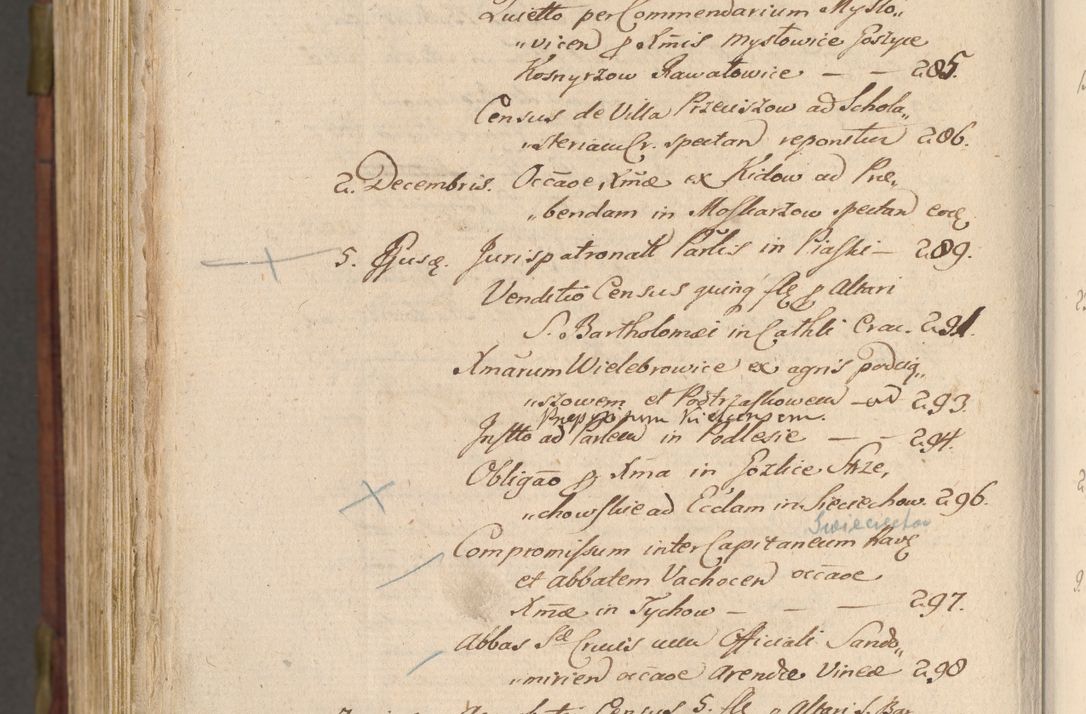 Quietto per Commendarium Mysło„
„vicen p Xmis Mysłowice Goszyce
Kosnyrzow Rawałowice — — 285.
Census de Villa Przeuiszow ad Schola„
„steriam Cr. spectan reponitur 286.
2. Decembris. Occãoe Xmæ ex Kidow ad Præ„
„bendam in Moskarzow spectan eod
5. Ejusq. Jurispatronatt Parlis in Piaski — 289.
Venditio Census quinq fl p Altari
S. Bartholomæi in Cathli Crac. 291.
Xmãrum Wielebrowice ex agris podciq„
„szowem et Postrzałkowem — ad 293.
Præpositum Kielcensem.
Instto ad Parlem in Podlesie — — 294.
Obligão p Xma in Gozlice Strze„
„chowskie ad Ecclam in Sieciechow. 296.
Swieciechow
Compromissum inter Capitaneum Rave
et Abbatem Vachocen occãoe
Xmæ in Tychow — — — 297.
Abbas Sæ Crucis cum Officiali Sando„
„mirien occãoe Arendæ Vineæ 298
Census 5. fl p Altari S. Bar